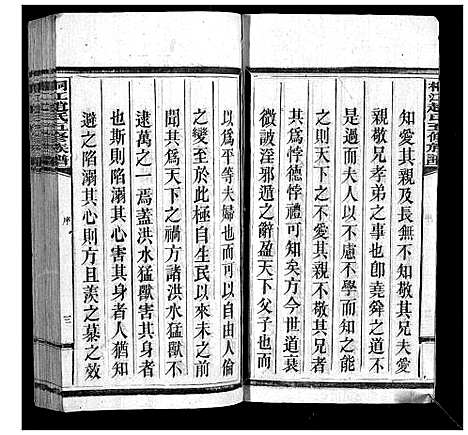 知愛其親及長無不知敬其兄夫愛
親敬兄孝弟之事也卽堯舜之道不
是過焉而夫人以不慮不學而知之能
之則天下之不愛其親不敬其兄者
其爲悖德悖禮可知矣方今世道衰
微詖淫邪遁之辭盈天下父子也而
以爲平等夫婦也而以自由人倫
之變至於此極自生民以來未之前
聞其爲天下之禍方諸洪水猛獸不
逮萬之一焉蓋洪水猛獸害其身者
也斯則陷溺其心害其身者人猶知
避之陷溺其心則方且羨之慕之效
桐江趙氏五修族譜
序
三